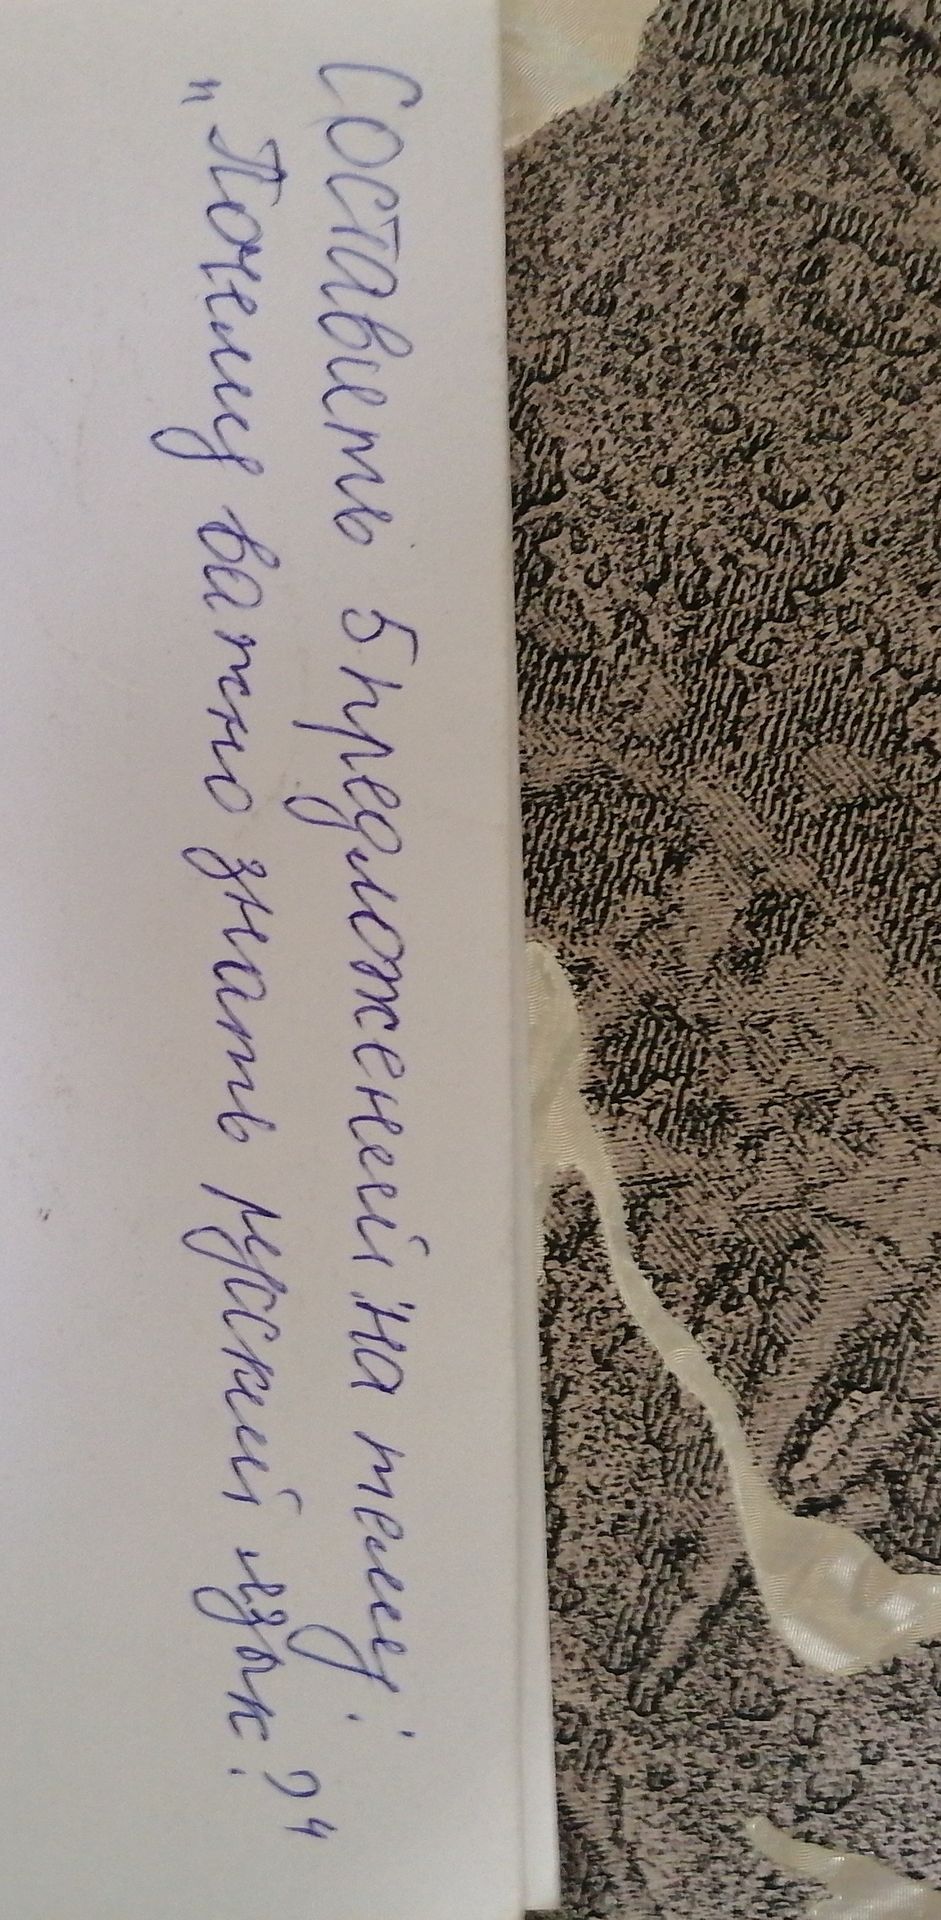 Составить 5 предложений на тему:
"Почему важно знать русский язык?"